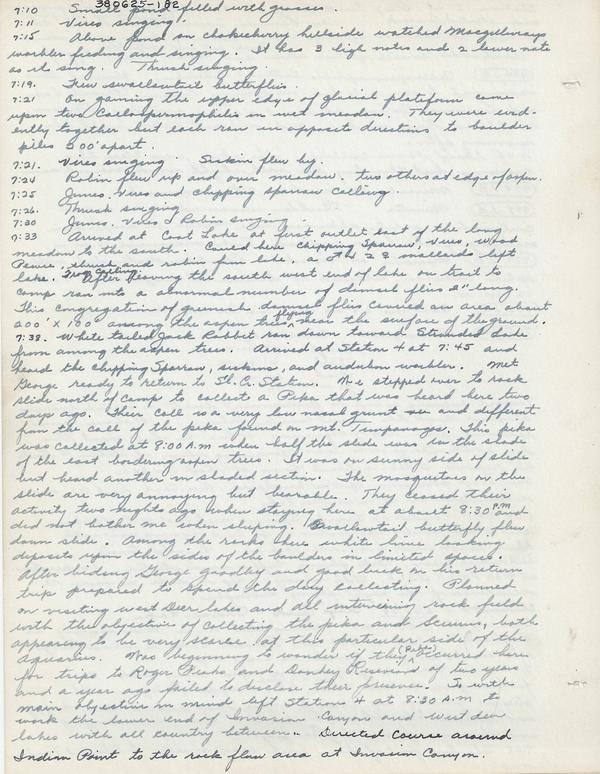 380625-182
7:10 Small pond filled with grasses.
7:11 Vireo singing.
7:15 Above pond on chokecherry hillside watched Macgillivrays
warbler feeding and singing. It has 3 high notes and 2 lower note
as it sing. Thrush singing.
7:19. Few swallowtail butterflies.
7:21 On gaining the upper edge of glacial platform came
upon two Callospermophilis in wet meadow. They were evid-
ently together but each ran in opposite directions to boulder
piles 200' apart.
7:21. Vireo singing. Siskin flew by.
7:24 Robin flew up and over meadow. two others at edge of aspen.
7:25 Junco, Vireo and chipping sparrow calling.
7:26. Thrush singing
7:30 Junco, Vireo & Robin singing.
7:33 Arrived at Coot Lake at first outlet east of the long
meadow to the south. Could hear Chipping Sparrow, Vireo, wood
Pewee, thrush and robin from lake. a ♂ and 2 ♀ mallards left
lake. Frogs calling. After leaving the south west end of lake on trail to
camp ran into a abnormal number of damsel flies 2" long.
This congregation of greenish damsel flies covered an area about
200' x 100' among the aspen trees flying near the surface of the ground.
7:38. White tailed Jack Rabbit ran down toward Stranded Lake
from among the aspen trees. Arrived at Station 4 at 7:45 and
heard the chipping Sparrow, siskins, and audubon warbler. Met
George ready to return to St. Q. Station. We stepped over to rock
slide north of camp to collect a Pika that was heard here two
days ago. Their call is a very low nasal grunt and different
from the call of the pika found on Mt. Timpanogos. This pika
was collected at 8:00 A.M when half the slide was in the shade
of the east bordering aspen trees. It was on sunny side of slide
but heard another in shaded section. The mosquitoes on the
slide are very annoying but bearable. They ceased their
activity two nights ago when staying here at about 8:30 P.M and
did not bother me when sleeping. Swallowtail butterfly flew
down slide. Among the rocks there white lime looking
deposits upon the sides of the boulders in limited spaces.
After biding George goodby and good luck on his return
trip prepared to spend the day collecting. Planned
on visiting west Deer lakes and all intervening rock field
with the objective of collecting the pika and Sciurus, both
appearing to be very scarce at this particular side of the
Aquarius. Was beginning to wonder if they (Pika) occurred here
for trips to Roger Peak and Donkey Reservoir of two years
and a year ago failed to disclose their presence. So with
main objective in mind left Station 4 at 8:30 A.M to
work the lower end of Invasion Canyon and west deer
lakes with all country between. Directed Course around
Indian Point to the rock flow area at Invasion Canyon.